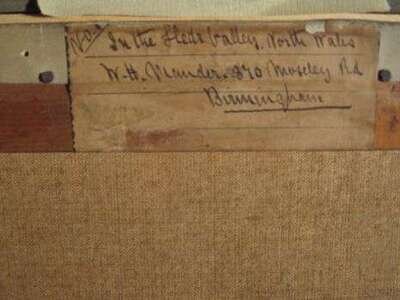 No 3 In the Lledr Valley, North Wales
W. H. Mander. 370 Moseley Rd
Birmingham